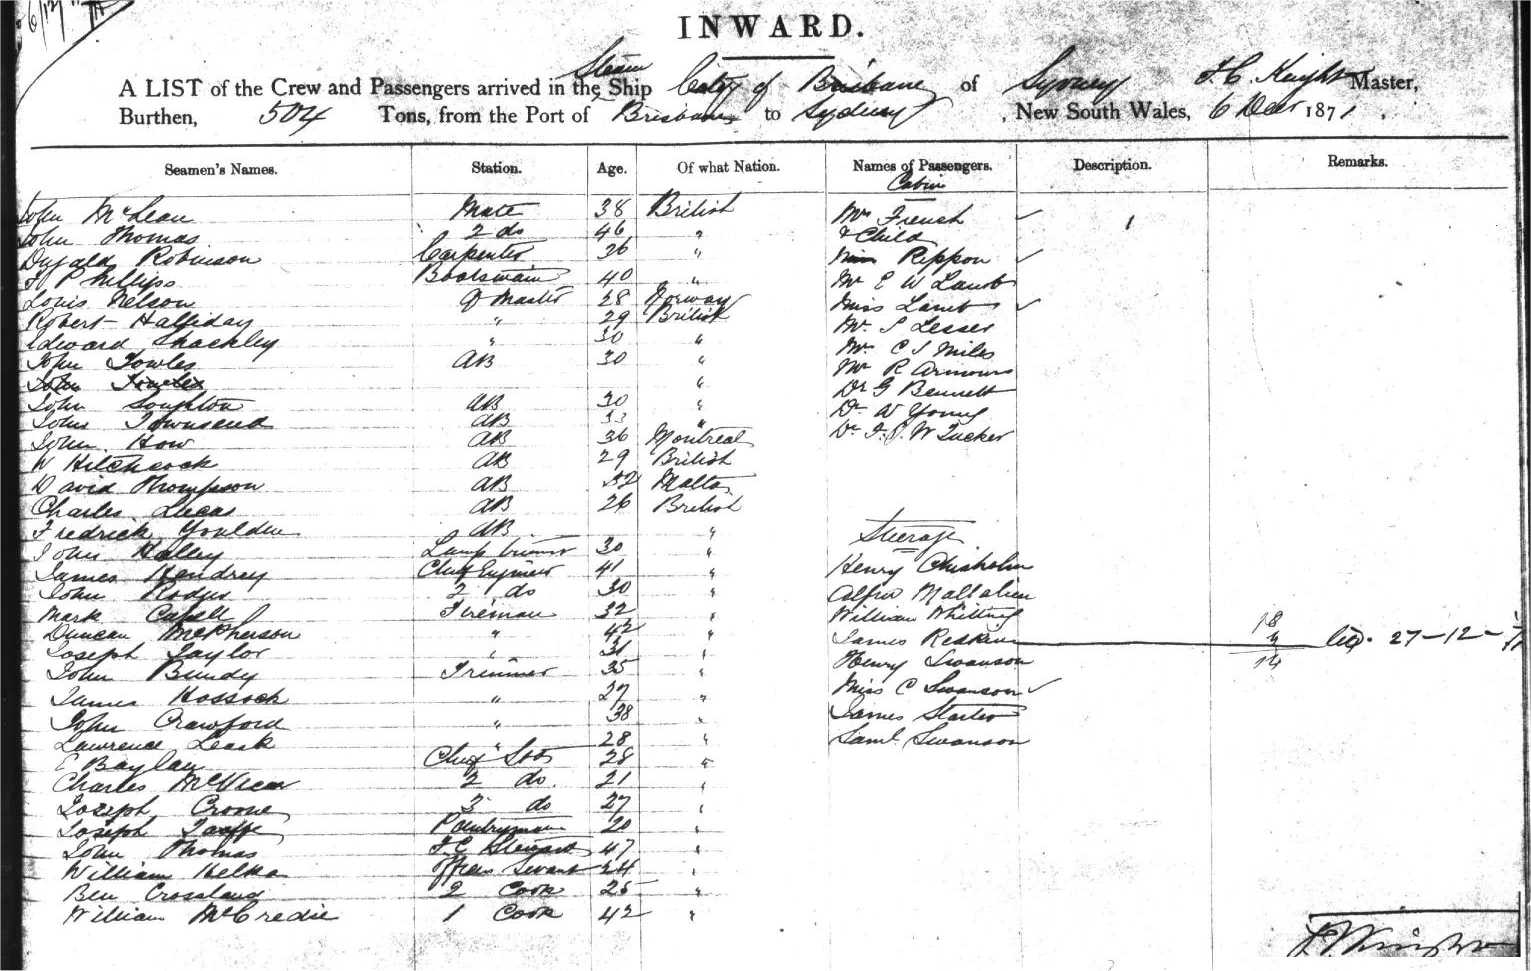 6/12/71
INWARD.
A LIST of the Crew and Passengers arrived in the Steam Ship City of Brisbane of Sydney F. C. Knight Master,
Burthen, 504 Tons, from the Port of Brisbane to Sydney, New South Wales, 6 Decr 1871.
Seamen's Names. Station. Age. Of what Nation. Names of Passengers. Description. Remarks.
Cabin
John McLean Mate 38 British Mrs French ✓ 1
John Thomas 2 do 46 " & Child
Dugald Robinson Carpenter 36 " Rippon ✓
P Phillips Boatswain 40 " Mr E W Lamb
Louis Nelson Q Master 28 Norway Miss Lamb ✓
Robert Halliday " 29 British Mr S Lesser
Edward Shackley " 30 " Mr C J Miles
John Fowles AB 30 " Mr R Armour
John Fowles " Dr G Bennett
John Soughton AB 30 " Dr W Young
John Townsend AB 33 " Dr W Tucker
John How AB 36 Montreal
W Hitchcock AB 29 British
David Thompson AB 32 Malta
Charles Lucas AB 26 British
Fredrick Youlden AB " Steerage
John Kelley Lamp trimmer 30 "
James Hendrey Chief Engineer 41 " Henry Chisholm
John Rodgers 2 do 30 " Alfred Mallalieu
Mark Cupell Fireman 32 " William Whitting
Duncan McPherson " 42 " James Redskin 18 4 14 27-12-71
Joseph Taylor " 31 " Henry Swanson
John Bundy Trimmer 35 " Miss C Swanson ✓
James Hossack " 27 " James
John Crawford " 38 " Saml Swanson
Lawrence Leask " 28 "
E Baylan Chief 28 "
Charles McVicar 2 do. 21 "
Joseph Croone 3 do 27 "
Joseph Taaffe Pantryman 20 "
John Thomas F. C Steward 47 "
William Officers Servant 24 "
Ben Crossland 2 Cook 25 "
William McCredie 1 Cook 42 "